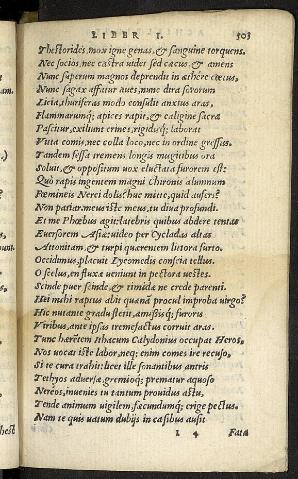 LIBER I. 303
Thestorides, mox igne genas, & sanguine torquens.
Nec socios, nec castra uidet sed cæcus, & amens
Nunc superum magnos deprendit in æthere cœtus,
Nunc sagax affatur aues, nunc dira sororum
Licia, thuriferas modo consulit anxius aras,
Flammarumq; apices rapit, & caligine sacra
Pascitur, exiliunt crines, rigidisq; laborat
Vitta comis, nec colla loco, nec in ordine gressus.
Tandem fessa tremens longis mugitibus ora
Soluit, & oppositum uox eluctata furorem est:
Quò rapis ingentem magni Chironis alumnum
Fœmineis Nerei dolis huc mitte, quid aufers?
Non patiar, meus iste meus, tu diua profundi.
Et me Phœbus agit, latebris quibus abdere tentas
Euersorem Asiæ: uideo per Cycladas altas
Attonitam, & turpi quærentem littora furto.
Occidimus, placuit Lycomedis conscia tellus.
O scelus, en fluxæ ueniunt in pectora uestes.
Scinde puer scinde, & timidæ ne crede parenti.
Hei mihi raptus abit quanā procul improba uirgo?
Hic nutante gradu stetit, amissisq; furoris
Viribus, ante ipsas tremefactus corruit aras.
Tunc hærētem Ithacum Calydonius occupat Heros,
Nos uocat iste labor, neq; enim comes ire recuso,
Si te cura trahit: licet ille sonantibus antris
Tethyos aduersæ, gremioq; prematur aquoso
Nereos, inuenies tu tantum prouidus astu,
Tende animum uigilem, fæcundumq; erige pectus.
Nam te quis uatum dubijs in casibus ausit
I 4 Fata